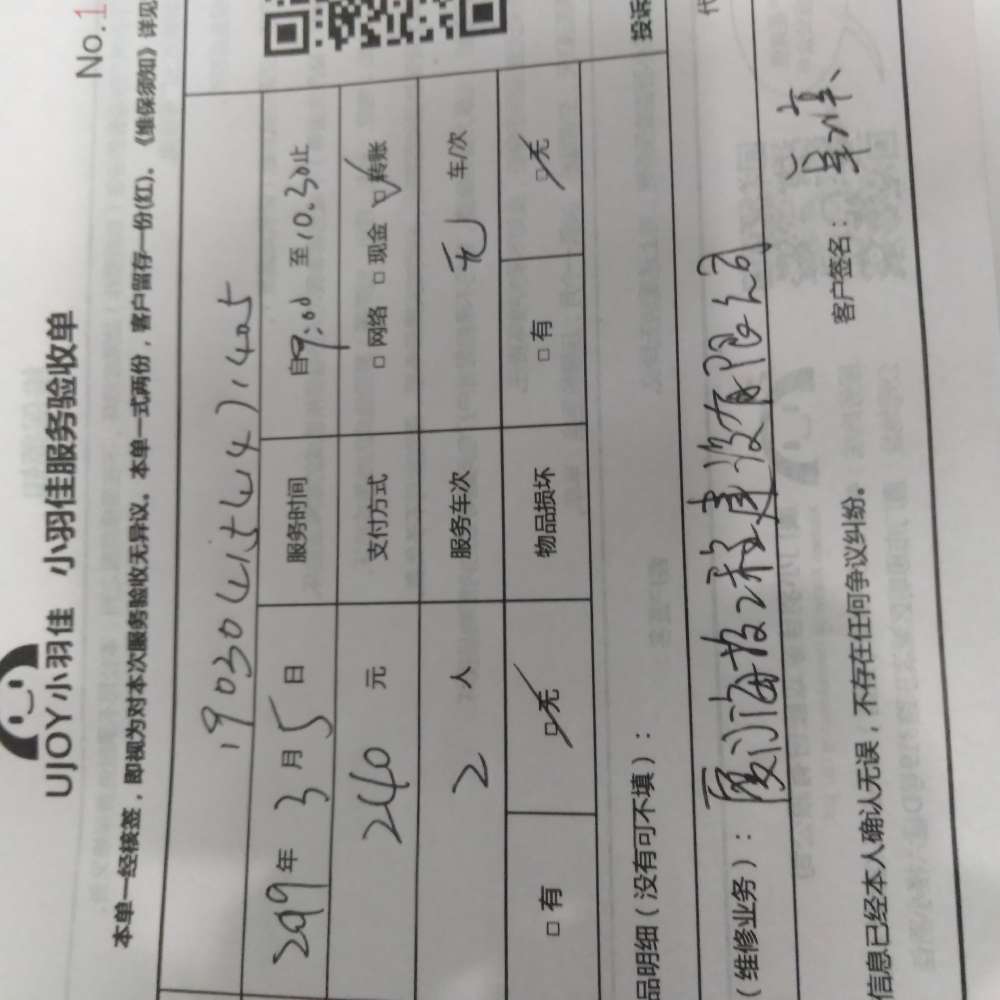 No.1
UJOY小羽佳 小羽佳服务验收单
本单一经核签，即视为对本次服务验收无异议。本单一式两份，客户留存一份(红)。《维保须知》详见
2019年 3月5日 服务时间 自9:00 至10.30止
240 元 支付方式 □网络 □现金 □转账
2 人 服务车次 无 车/次
□有 □无 物品损坏 □有 □无
品明细（没有可不填）： 投诉
（维修业务）：厦门海投工程建设有限公司 代
信息已经本人确认无误，不存在任何争议纠纷。 客户签名：